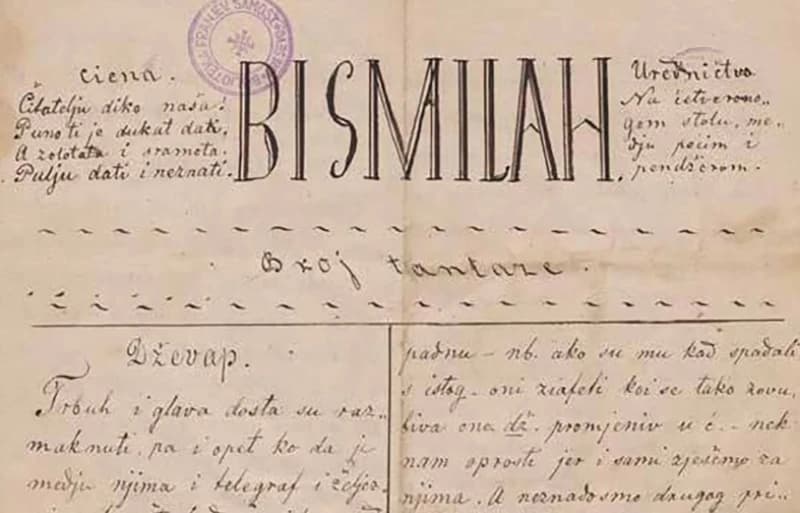 BIBLIOTEKA FRANJEV. SAMOST.
ciena.
Čitatelju diko naša!
Puno ti je dukat dati,
A zolotata i sramota.
Pulju dati i neznati.
BISMILAH.
Uredničtvo
Na četverono-
gom stolu, me-
dju pećim i
pendžerom.
Broj tantaze.
Dževap.
Trbuh i glava dosta su raz-
maknuti, pa i opet ko da je
medju njima i telegraf i željez-
padnu – nb. ako su mu kad spadali
s istog – oni ziafeti koi se tako zovu,
biva ona dž. promjeniv u ć. – nek
nam oprosti jer i sami zješćemo za
njima. A neznadosmo drugog pri-